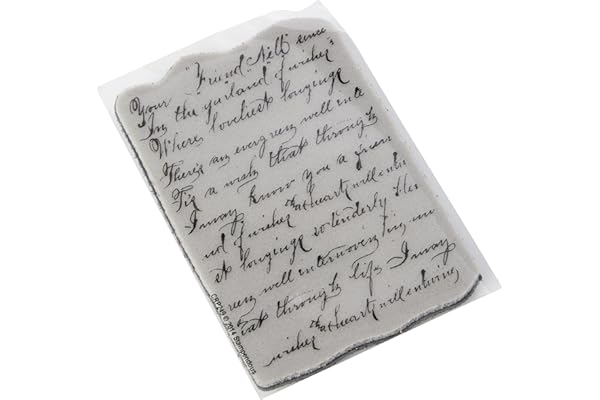 Your "Friend" "Nell" since
In the garland of wishes"
Where loveliest longings
There's an evergreen well ente
Tis a wish that through
I may know you a frien
nd of wishes that heart will entwine
st longings so tenderly blen
green well interwoven in
that through life I may
wishes that heart will entwine
© 2014 Stampendous